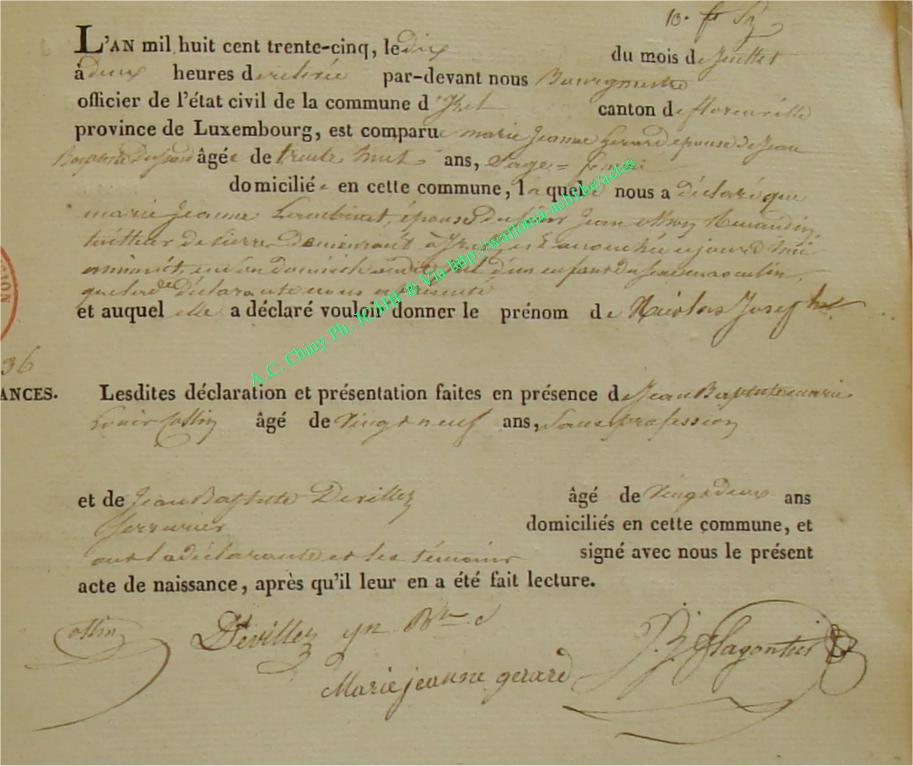 L'AN mil huit cent trente-cinq, le dix du mois de juillet
à deux heures de relevée par-devant nous Bourgmestre
officier de l'état civil de la commune d' canton de florenville
province de Luxembourg, est comparue marie Jeanne Gerard épouse de Jean
Baptiste âgée de trente huit ans, Sage-femme
domiciliée en cette commune, laquelle nous a déclaré que
marie Jeanne Lambinet, épouse du Sieur Jean
de pierre Demeurant à est accouchée ce jourd'hui
à minuit, en son Domicile d'un enfant du Sexe masculin
que la de déclarante nous a présenté
et auquel elle a déclaré vouloir donner le prénom de Nicolas Joseph
36
ANCES.
Lesdites déclaration et présentation faites en présence de Jean Baptiste marie
Louis Collin âgé de Vingt neuf ans, Sans profession
et de Jean Baptiste Devillez âgé de Vingt deux ans
Serrurier domiciliés en cette commune, et
ont la déclarante et les témoins signé avec nous le présent
acte de naissance, après qu'il leur en a été fait lecture.
Collin Devillez jn Bte
Marie jeanne gerard
A.C. Chiny Ph. JCHHP @ Via http://